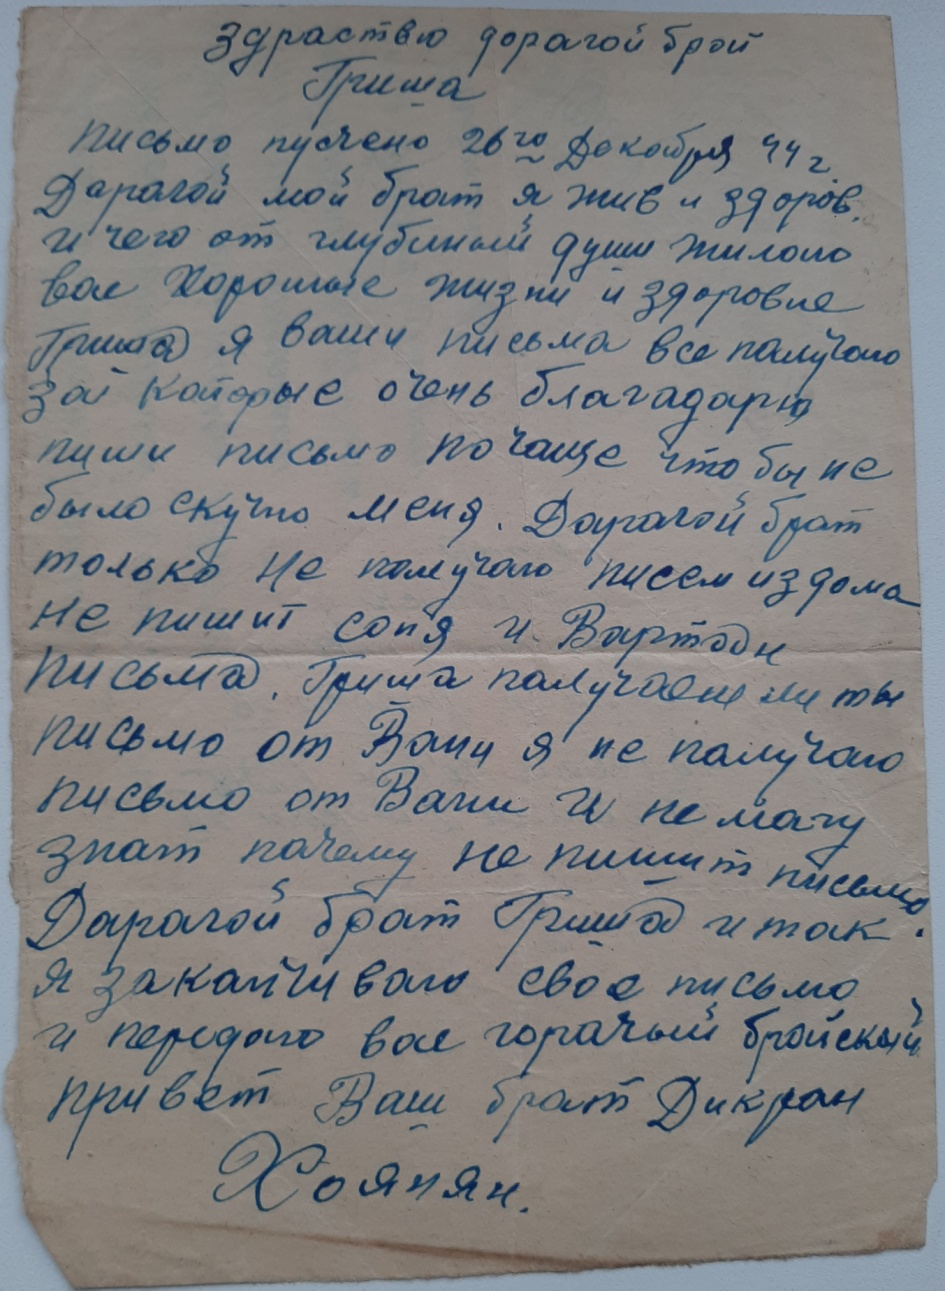 здраствю дорагой брой
Гриша
письмо пусчено 26го Декобря 44 г.
Дарагой мой брат я жив и здоров.
и чего от глубиный души жилаю
вас Хорошые жизни и здоровие
Гриша я ваши письма все палучаю
за каторые очень благадарю
пиши письмо почаще что бы не
было скучно меня. Дарагой брат
только не палучаю писем из дома
не пишит соня и Вартан
письма. Гриша палучаеш ли ты
письмо от Вани я не палучаю
письмо от Вани и не магу
знат почему не пишит письмо
Дарагой брат Гриша и так.
я заканчиваю свое письмо
и передаю вас горачый бройский
привет Ваш брат Дикран
Хоянян.